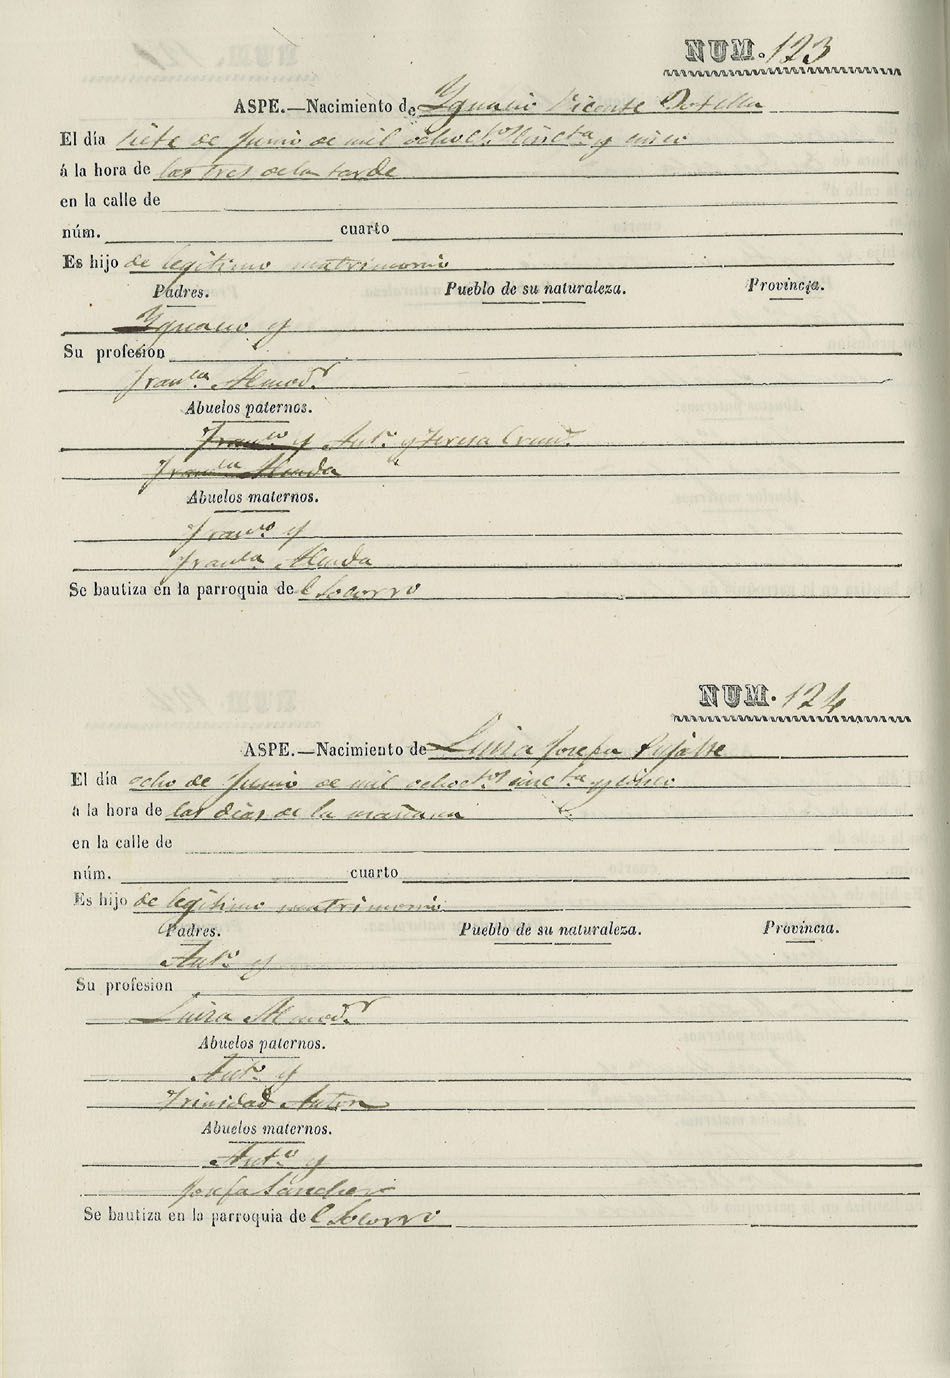 NUM. 123
ASPE.—Nacimiento de Ygnacio Vicente Botella
El día siete de Junio de mil ochoctos sincta y cinco
á la hora de las tres de la tarde
en la calle de
núm. cuarto
Es hijo de legitimo matrimonio
Padres. Pueblo de su naturaleza. Provincia.
Ygnacio y
Su profesion
Franca Almodr
Abuelos paternos.
Franco y Anto y Teresa
Franca Almda
Abuelos maternos.
Franco y
Franca Almda
Se bautiza en la parroquia del Socorro
NUM. 124
ASPE.—Nacimiento de Luisa Josefa
El día ocho de Junio de mil ochoctos sincta y cinco
á la hora de las dias de la mañana
en la calle de
núm. cuarto
Es hijo de legitimo matrimonio
Padres. Pueblo de su naturaleza. Provincia.
Anto y
Su profesion
Luisa Almodr
Abuelos paternos.
Anto y
Trinidad Anton
Abuelos maternos.
Anto y
Josefa Sanchez
Se bautiza en la parroquia del Socorro